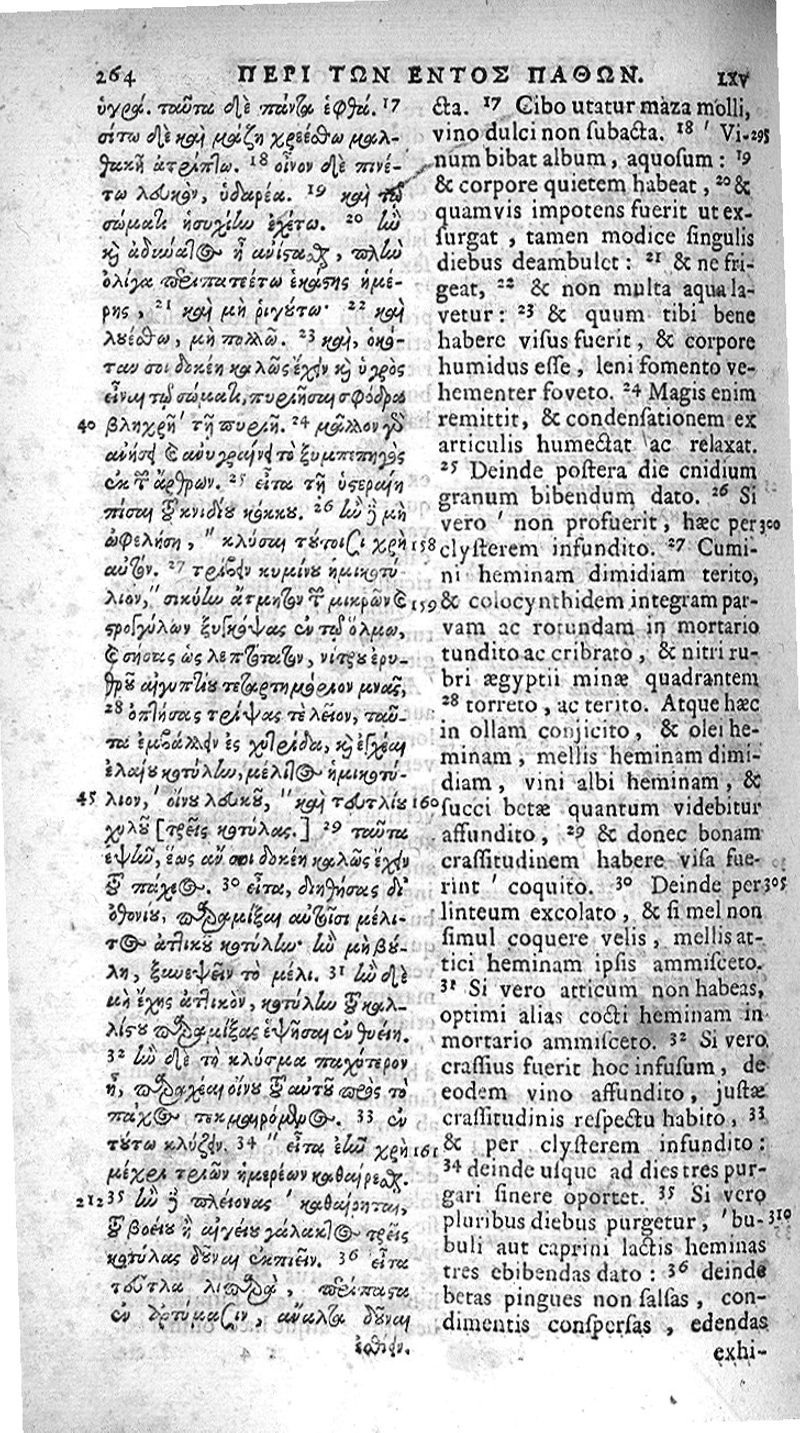 264 ΠΕΡΙ ΤΩΝ ΕΝΤΟΣ ΠΑΘΩΝ. LXV
ὑγρά. ταῦτα δὲ πάντα ἑφθά. 17
σίτῳ δὲ καὶ μάζῃ χρεέσθω μαλ-
θακῇ ἀτρίπτῳ. 18 οἶνον δὲ πινέ-
τω λευκὸν, ὑδαρέα. 19 καὶ τῷ
σώματι ἡσυχίην ἐχέτω. 20 ἢν
καὶ ἀδύνατος ᾖ ἀνίστασθαι, πλὴν
ὀλίγα περιπατεέτω ἑκάστης ἡμέ-
ρης, 21 καὶ μὴ ῥιγούτω· 22 καὶ
λουέσθω, μὴ πολλῷ. 23 καὶ, ὁκό-
ταν σοι δοκέῃ καλῶς ἔχειν καὶ ὑγρὸς
εἶναι τῷ σώματι, πυριῆσαι σφόδρα
40 βληχρῇ ʹ τῇ πυρίῃ. 24 μᾶλλον γὰρ
ἀνήσει καὶ ἀνυγραίνει τὸ ξυμπεπηγὸς
ἐκ τῶν ἄρθρων. 25 εἶτα τῇ ὑστεραίῃ
πῖσαι τοῦ κνιδίου κόκκου. 26 ἢν δὲ μὴ
ὠφελήσῃ, ʺ κλύσαι τούτοισι χρὴ 158
αὐτόν. 27 τρίβειν κυμίνου ἡμικοτύ-
λιον, ʺ σικύην ἄτμητον τῶν μικρῶν καὶ 159
στρογγύλων ξυγκόψας ἐν τῷ ὅλμῳ,
καὶ σήσας ὡς λεπτότατον, νίτρου ἐρυ-
θροῦ αἰγυπτίου τεταρτημόριον μνᾶς,
28 ὀπτήσας τρίψας τε λεῖον, ταῦ-
τα ἐμβάλλειν ἐς χυτρίδα, καὶ ἐγχέαι
ἐλαίου κοτύλην, μέλιτος ἡμικοτύ-
45 λιον, ʹ οἴνου λευκοῦ, ʺ καὶ τευτλίου 160
χυλοῦ [τρεῖς κοτύλας.] 29 ταῦτα
ἑψεῖν, ἕως ἄν σοι δοκέῃ καλῶς ἔχειν
τοῦ πάχεος. 30 εἶτα, διηθήσας δι'
ὀθονίου, παραμίξαι αὐτοῖσι μέλι-
τος ἀττικοῦ κοτύλην· ἢν μὴ βού-
λῃ, ξυνεψεῖν τὸ μέλι. 31 ἢν δὲ
μὴ ἔχῃς ἀττικὸν, κοτύλην τοῦ καλ-
λίστου παραμίξας ἑψῆσαι ἐν θυείῃ.
32 ἢν δὲ τὸ κλύσμα παχύτερον
ᾖ, παραχέαι οἴνου τοῦ αὐτοῦ πρὸς τὸ
πάχος τεκμαιρόμενος. 33 ἐν
τούτῳ κλύζειν. 34 ʺ εἶτα ἐᾶν χρὴ 161
μέχρι τριῶν ἡμερέων καθαίρεσθαι.
212 35 ἢν δὲ πλείονας ʹ καθαίρηται,
τοῦ βοείου ἢ αἰγείου γάλακτος τρεῖς
κοτύλας δοῦναι ἐκπιεῖν. 36 εἶτα
τεῦτλα λιπαρὰ, περίπαστα
ἐν ἀρτύμασιν, ἄναλτα δοῦναι
ἐσθίειν.
cta. 17 Cibo utatur maza molli,
vino dulci non subacta. 18 ' Vi- 295
num bibat album, aquosum: 19
& corpore quietem habeat, 20 &
quamvis impotens fuerit ut ex-
surgat, tamen modice singulis
diebus deambulet: 21 & ne fri-
geat, 22 & non multa aqua la-
vetur: 23 & quum tibi bene
habere visus fuerit, & corpore
humidus esse, leni fomento ve-
hementer foveto. 24 Magis enim
remittit, & condensationem ex
articulis humectat ac relaxat.
25 Deinde postera die cnidium
granum bibendum dato. 26 Si
vero ' non profuerit, hæc per 300
clysterem infundito. 27 Cumi-
ni heminam dimidiam terito,
& colocynthidem integram par-
vam ac rotundam in mortario
tundito ac cribrato, & nitri ru-
bri ægyptii minæ quadrantem
28 torreto, ac terito. Atque hæc
in ollam conjicito, & olei he-
minam, mellis heminam dimi-
diam, vini albi heminam, &
succi betæ quantum videbitur
affundito, 29 & donec bonam
crassitudinem habere visa fue-
rint ' coquito. 30 Deinde per 305
linteum excolato, & si mel non
simul coquere velis, mellis at-
tici heminam ipsis ammisceto.
31 Si vero atticum non habeas,
optimi alias cocti heminam in
mortario ammisceto. 32 Si vero
crassius fuerit hoc infusum, de
eodem vino affundito, justæ
crassitudinis respectu habito, 33
& per clysterem infundito:
34 deinde usque ad dies tres pur-
gari sinere oportet. 35 Si vero
pluribus diebus purgetur, ' bu- 310
buli aut caprini lactis heminas
tres ebibendas dato: 36 deinde
betas pingues non salsas, con-
dimentis conspersas, edendas
exhi-